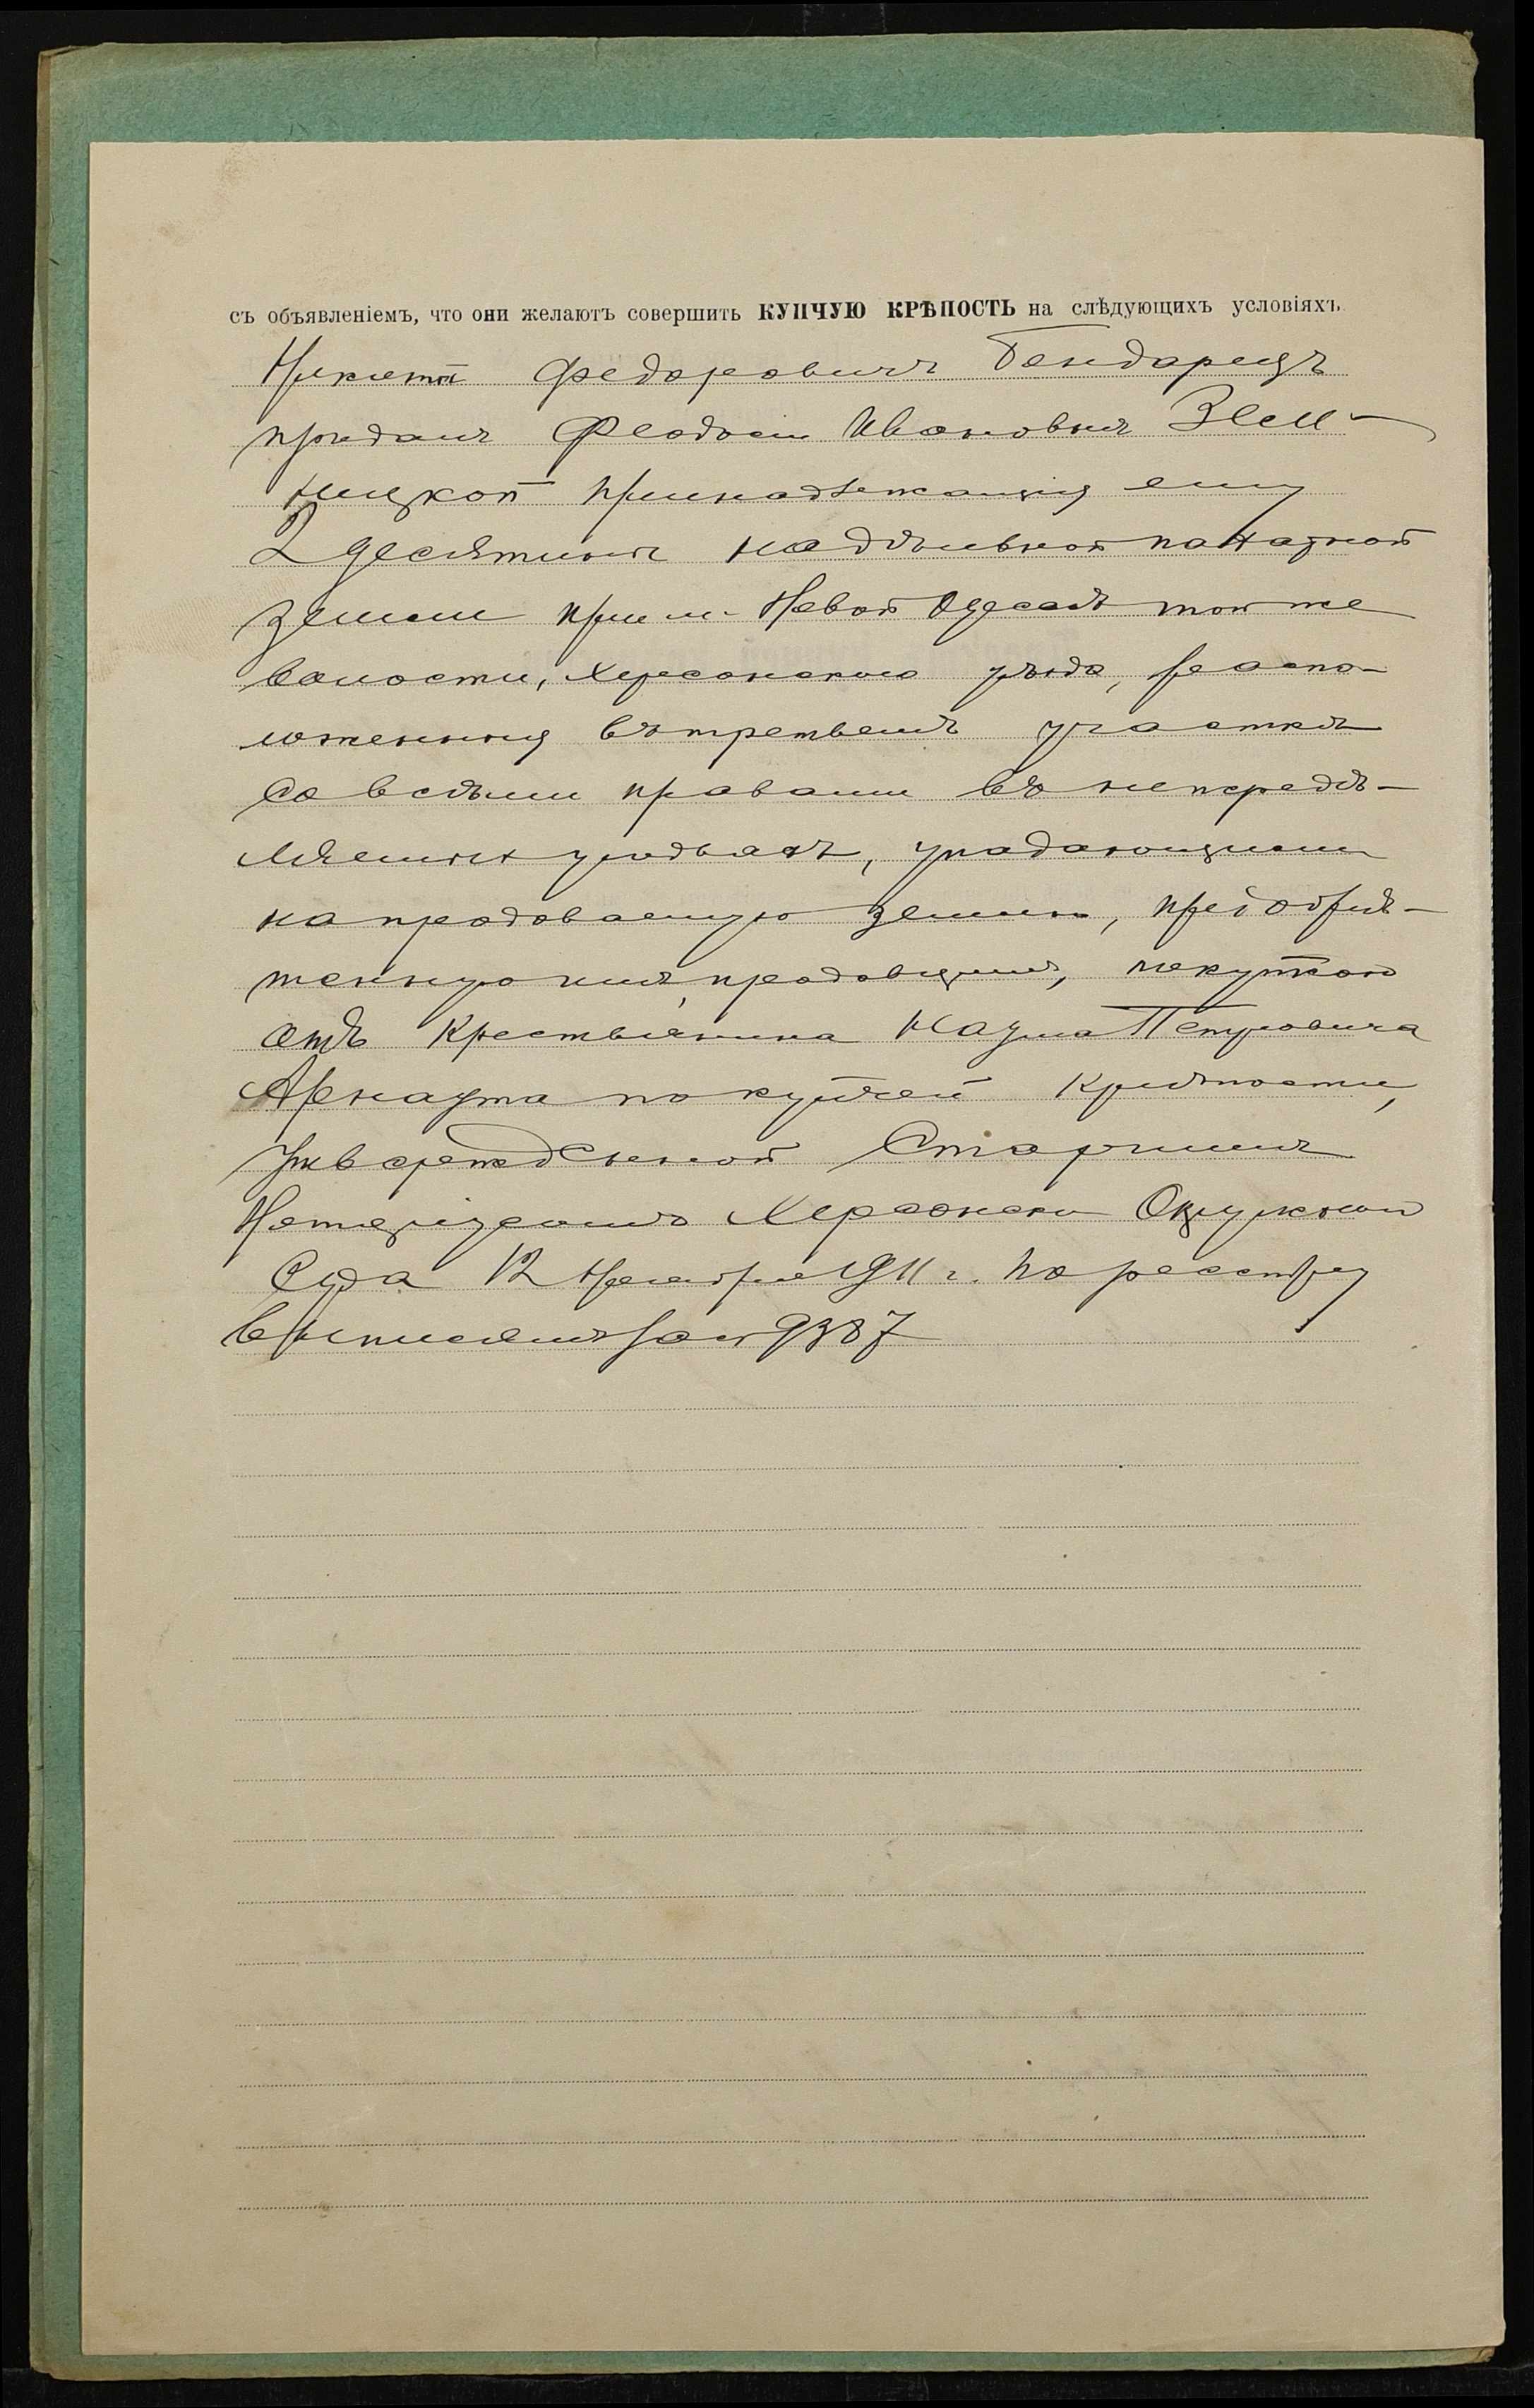 съ объявленіемъ, что они желаютъ совершить КУПЧУЮ КРѢПОСТЬ на слѣдующихъ условіяхъ
Никита Федоровичъ Бондарецъ
продалъ Феодосіи Ивановнѣ
принадлежащія ему
2 десятины надѣльной пахатной
земли при м. Новой Одессѣ той же
волости, Херсонскаго уѣзда, распо-
ложенныя въ третьемъ участкѣ
со всѣми правами въ непередѣ-
ляемыхъ угодьяхъ, упадающими
на продаваемую землю, пріобрѣ-
тенную имъ, продавцомъ, покупкою
отъ крестьянина Наума Петровича
Арнаута по купчей крѣпости,
утвержденной Старшимъ
Нотаріусомъ Херсонскаго Окружного
Суда 12 Ноября 1911 г. по реестру
выписей за № 9387